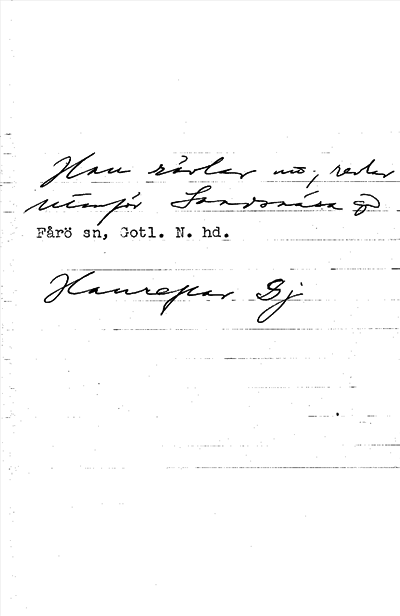 Hau rävlar no, revlar
utanför Sandsnäsa
Fårö sn, Gotl. N. hd.
Haurevlar Gj